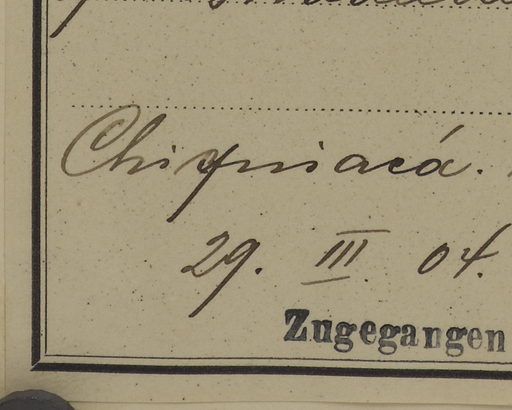 Chiquiacá.
29. III. 04.
Zugegangen